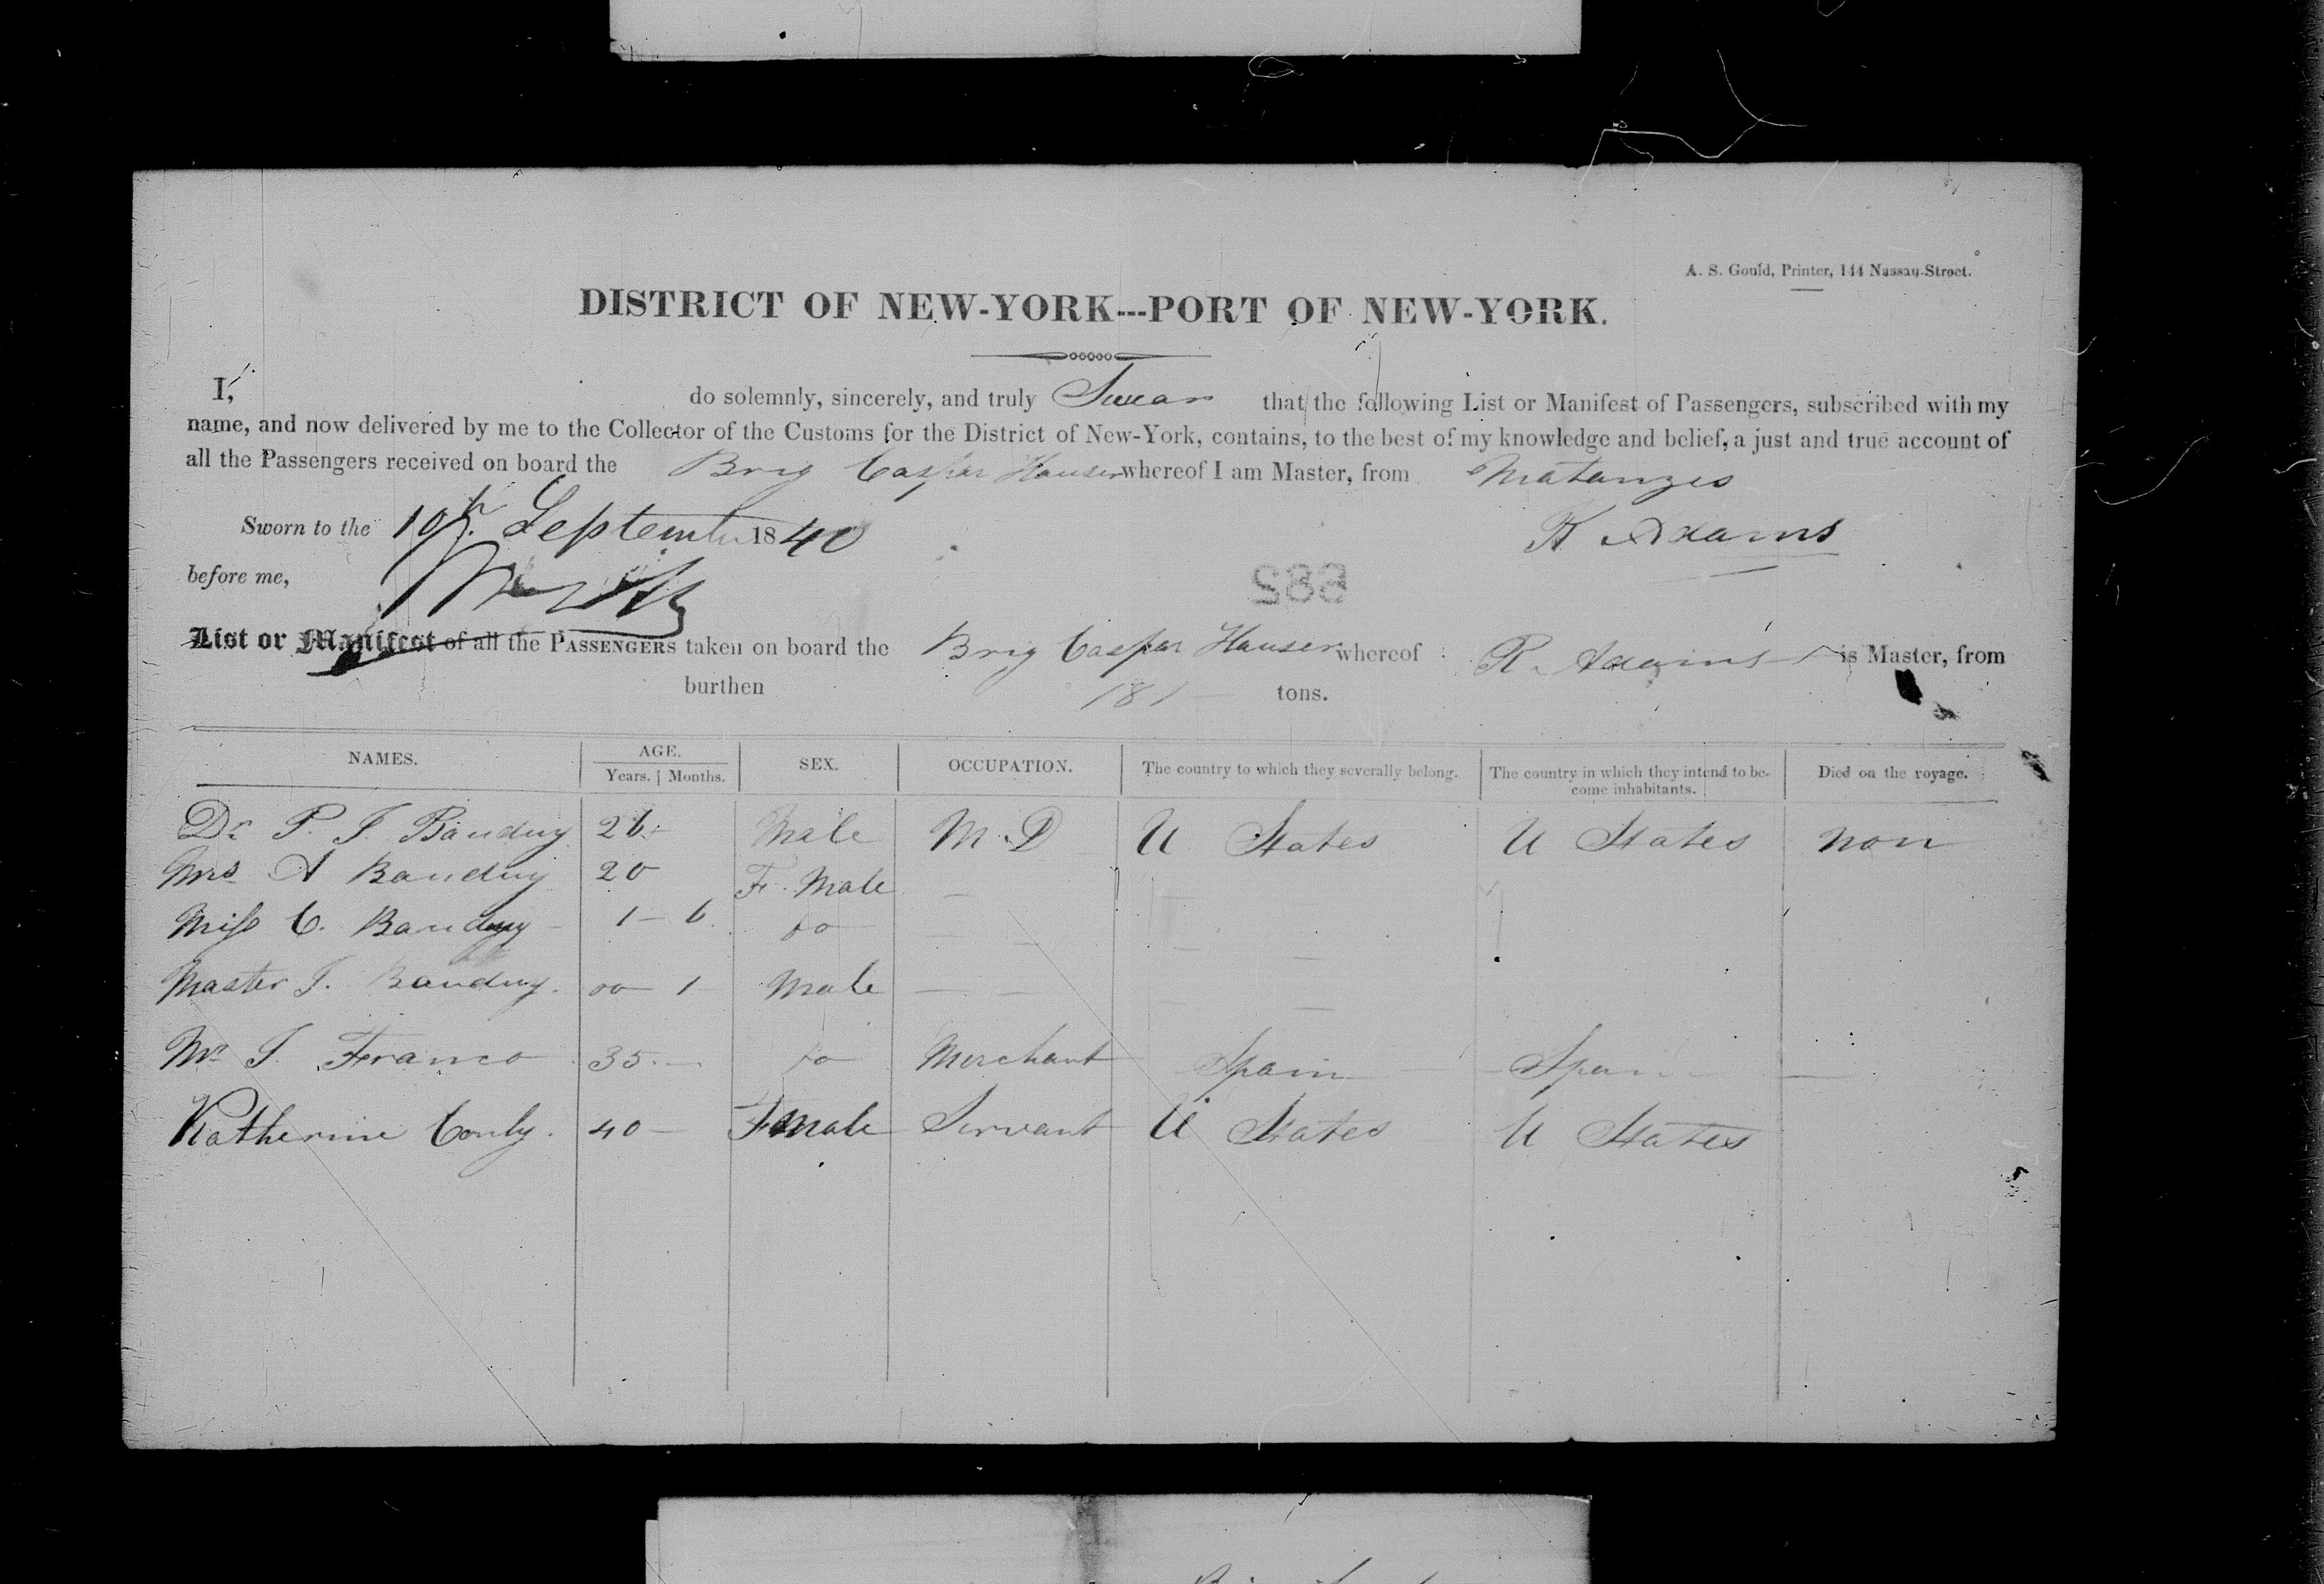 A. S. Gould, Printer, 144 Nassau-Street.
DISTRICT OF NEW-YORK---PORT OF NEW-YORK.
I, do solemnly, sincerely, and truly Swear that the following List or Manifest of Passengers, subscribed with my
name, and now delivered by me to the Collector of the Customs for the District of New-York, contains, to the best of my knowledge and belief, a just and true account of
all the Passengers received on board the Brig Caspar Hauser whereof I am Master, from Matanzes
Sworn to the 10th. September 1840
R Adams
before me,
882
List or Manifest of all the PASSENGERS taken on board the Brig Caspar Hauser whereof R. Adams is Master, from
burthen 181 tons.
NAMES. AGE. SEX. OCCUPATION. The country to which they severally belong. The country in which they intend to be- Died on the royage.
Years. Months. come inhabitants.
Dr. P. J. Bauduy 26 Male M.D U States U States non
Mrs A Bauduy 20 Fe. Male
Miss C. Bauduy 1 - 6 Do
Master J. Bauduy. 00 - 1 Male
Mr J. Franco 35. Do Merchant Spain Spain
Katherine Conly. 40 Female Servant U States U States